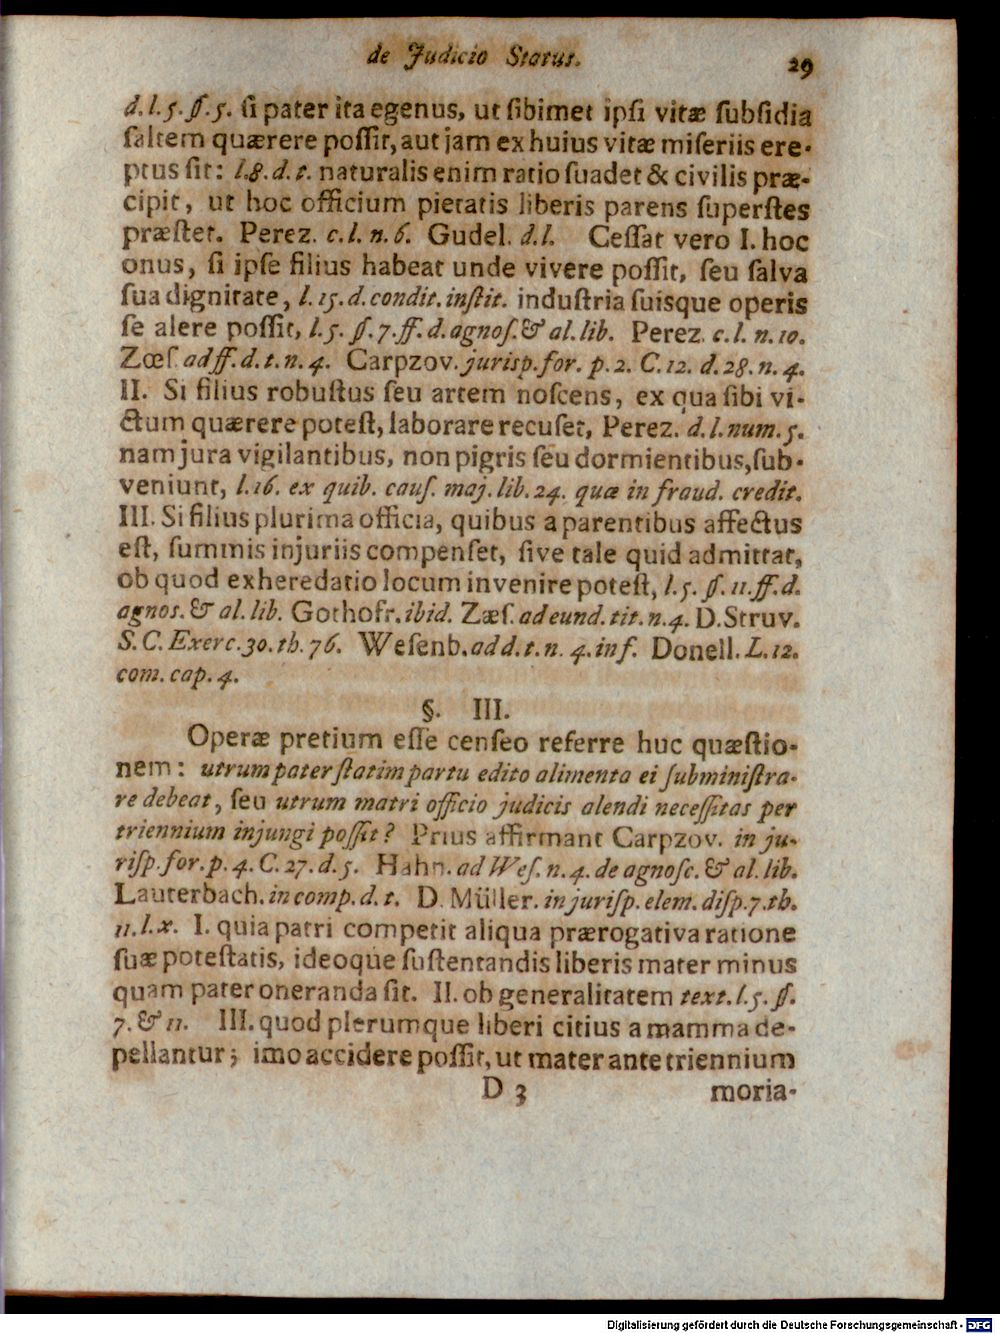 de Judicio Status. 29
d. l. 5. §. 5. ſi pater ita egenus, ut ſibimet ipſi vitæ ſubſidia
ſaltem quærere poſſit, aut jam ex huius vitæ miſeriis ere-
ptus ſit: l. 8. d. t. naturalis enim ratio ſuadet & civilis præ-
cipit, ut hoc officium pietatis liberis parens ſuperſtes
præſtet. Perez. c. l. n. 6. Gudel. d. l. Ceſſat vero I. hoc
onus, ſi ipſe filius habeat unde vivere poſſit, ſeu ſalva
ſua dignitate, l. 15. d. condit. inſtit. induſtria ſuisque operis
ſe alere poſſit, l. 5. §. 7. ff. d. agnoſ. & al. lib. Perez. c. l. n. 10.
Zœſ. ad ff. d. t. n. 4. Carpzov. jurisp. for. p. 2. C. 12. d. 28. n. 4.
II. Si filius robuſtus ſeu artem noſcens, ex qua ſibi vi-
ctum quærere poteſt, laborare recuſet, Perez. d. l. num. 5.
nam jura vigilantibus, non pigris ſeu dormientibus, ſub-
veniunt, l. 16. ex quib. cauſ. maj. lib. 24. quæ in fraud. credit.
III. Si filius plurima officia, quibus a parentibus affectus
eſt, ſummis injuriis compenſet, ſive tale quid admittat,
ob quod exheredatio locum invenire poteſt, l. 5. §. 11. ff. d.
agnos. & al. lib. Gothofr. ibid. Zæſ. ad eund. tit. n. 4. D. Struv.
S. C. Exerc. 30. th. 76. Weſenb. ad d. t. n. 4. inf. Donell. L. 12.
com. cap. 4.
§. III.
Operæ pretium eſſe cenſeo referre huc quæſtio-
nem: utrum pater ſtatim partu edito alimenta ei ſubminiſtra-
re debeat, ſeu utrum matri officio judicis alendi neceſſitas per
triennium injungi poſſit? Prius affirmant Carpzov. in ju-
riſp. for. p. 4. C. 27. d. 5. Hahn. ad Weſ. n. 4. de agnoſc. & al. lib.
Lauterbach. in comp. d. t. D. Müller. in juriſp. elem. diſp. 7. th.
11. l. x. I. quia patri competit aliqua prærogativa ratione
ſuæ poteſtatis, ideoque ſuſtentandis liberis mater minus
quam pater oneranda ſit. II. ob generalitatem text. l. 5. §.
7. & 11. III. quod plerumque liberi citius a mamma de-
pellantur; imo accidere poſſit, ut mater ante triennium
D 3 moria-
Digitalisierung gefördert durch die Deutsche Forschungsgemeinschaft - DFG